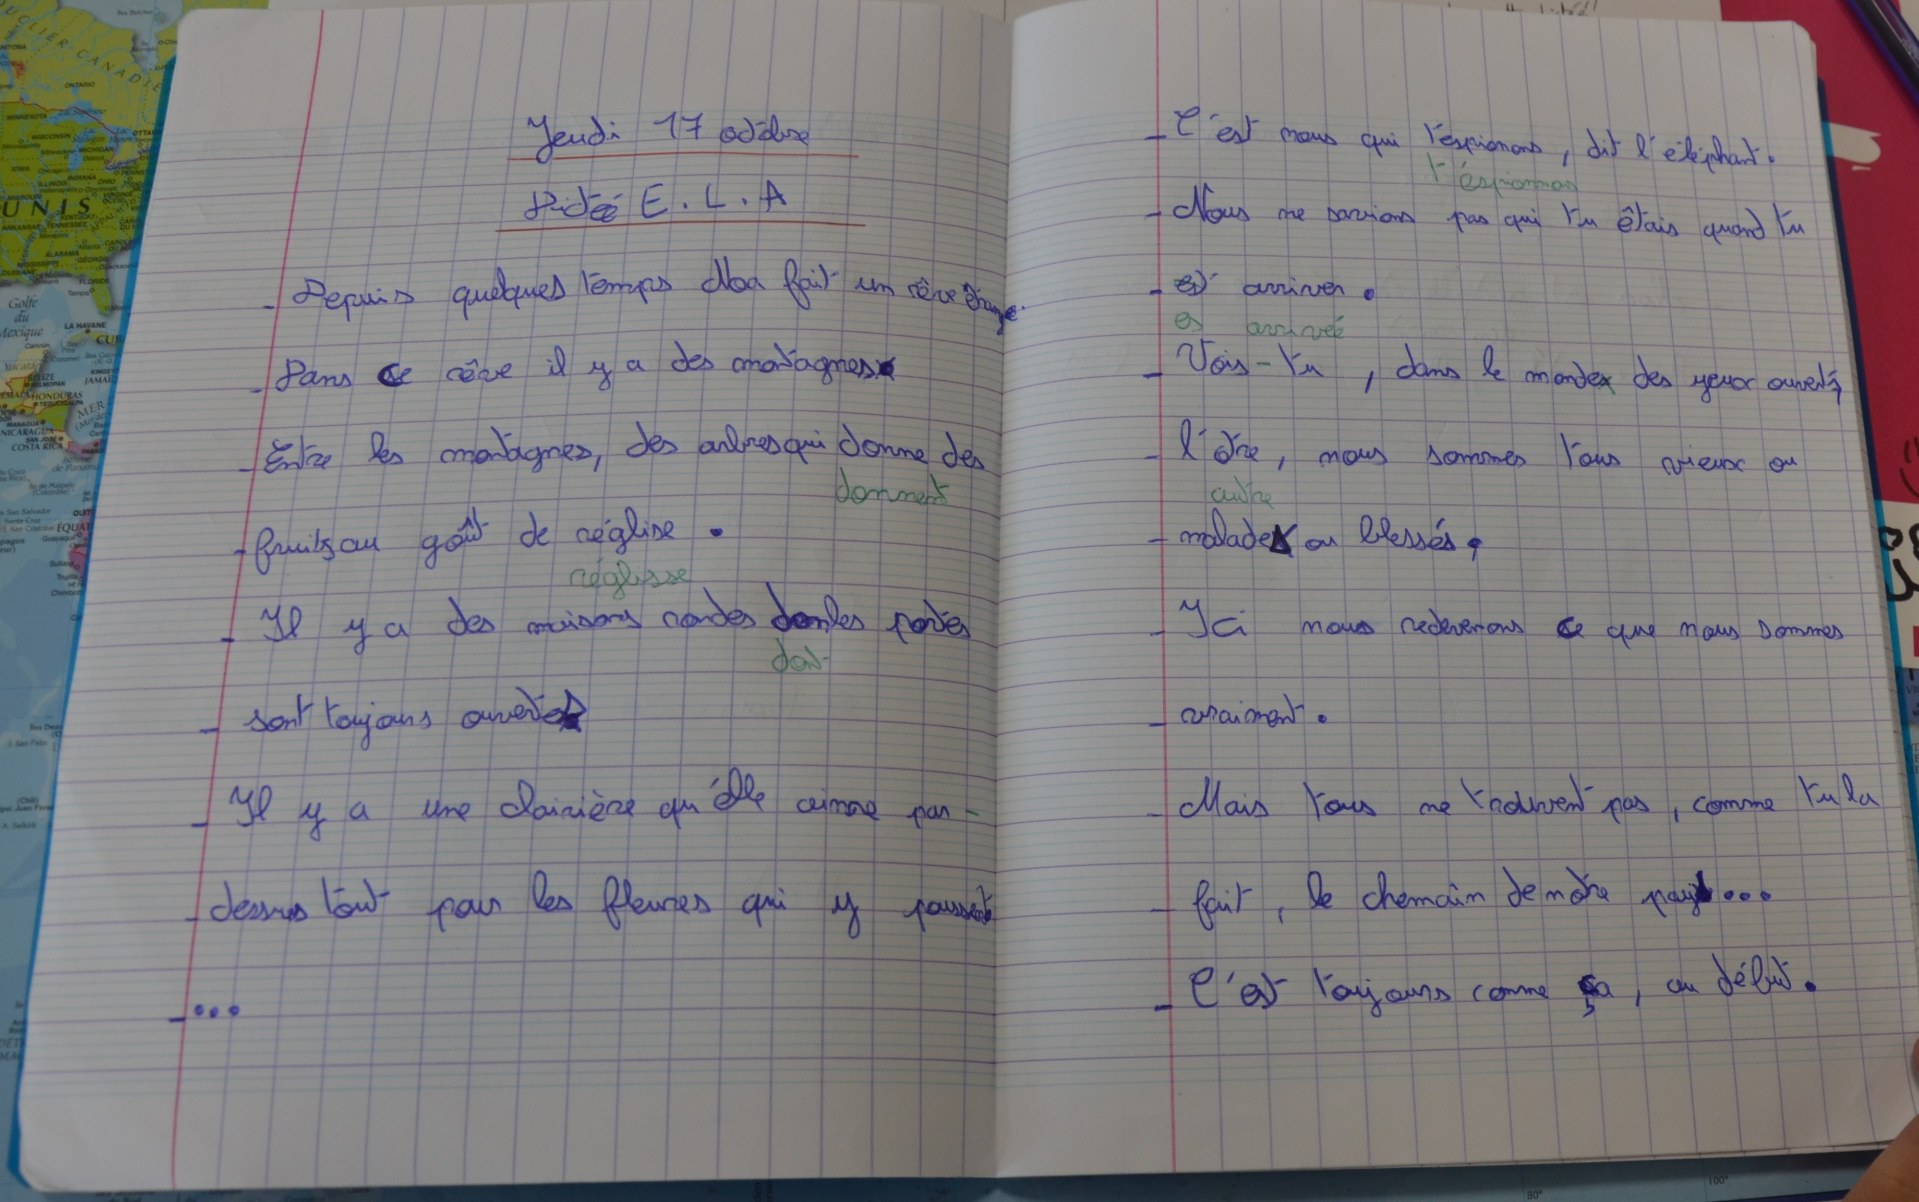 Jeudi 17 octobre
Dictée E.L.A
- Depuis quelques temps Noa fait un rêve étrange.
- Dans ce rêve il y a des montagnes
- Entre les montagnes, des arbres qui donne des
donnent
- fruits au goût de réglise.
réglisse
- Il y a des maisons rondes don les portes
dont
- sont toujours ouvertes
- Il y a une clairière qu'elle aimne par-
- dessus tout pour les fleures qui y poussent
- ...
- C'est nous qui t'espionons, dit l'éléphant.
t'éspionnons
- Nous ne savions pas qui tu êtais quand tu
- est arriver.
es arrivée
- Vois-tu, dans le monde des yeux ouverts,
- l'otre, nous sommes tous vieux ou
autre
- malades ou blessés.
- Ici nous redevenons ce que nous sommes
- vraiment.
- Mais tous ne trouvent pas, comme tu la
- fait, le chemain de notre pays...
- C'est toujours comme ça, au début.
UNIS
Golfe
du
Mexique
LA HAVANE
MER
HONDURAS
NICARAGUA
COSTA RICA
JAMAÏ
ONTARIO
MINNESOTA
WISCONSIN
MICHIGAN
ILLINOIS
INDIANA
ALABAMA
80°
100°